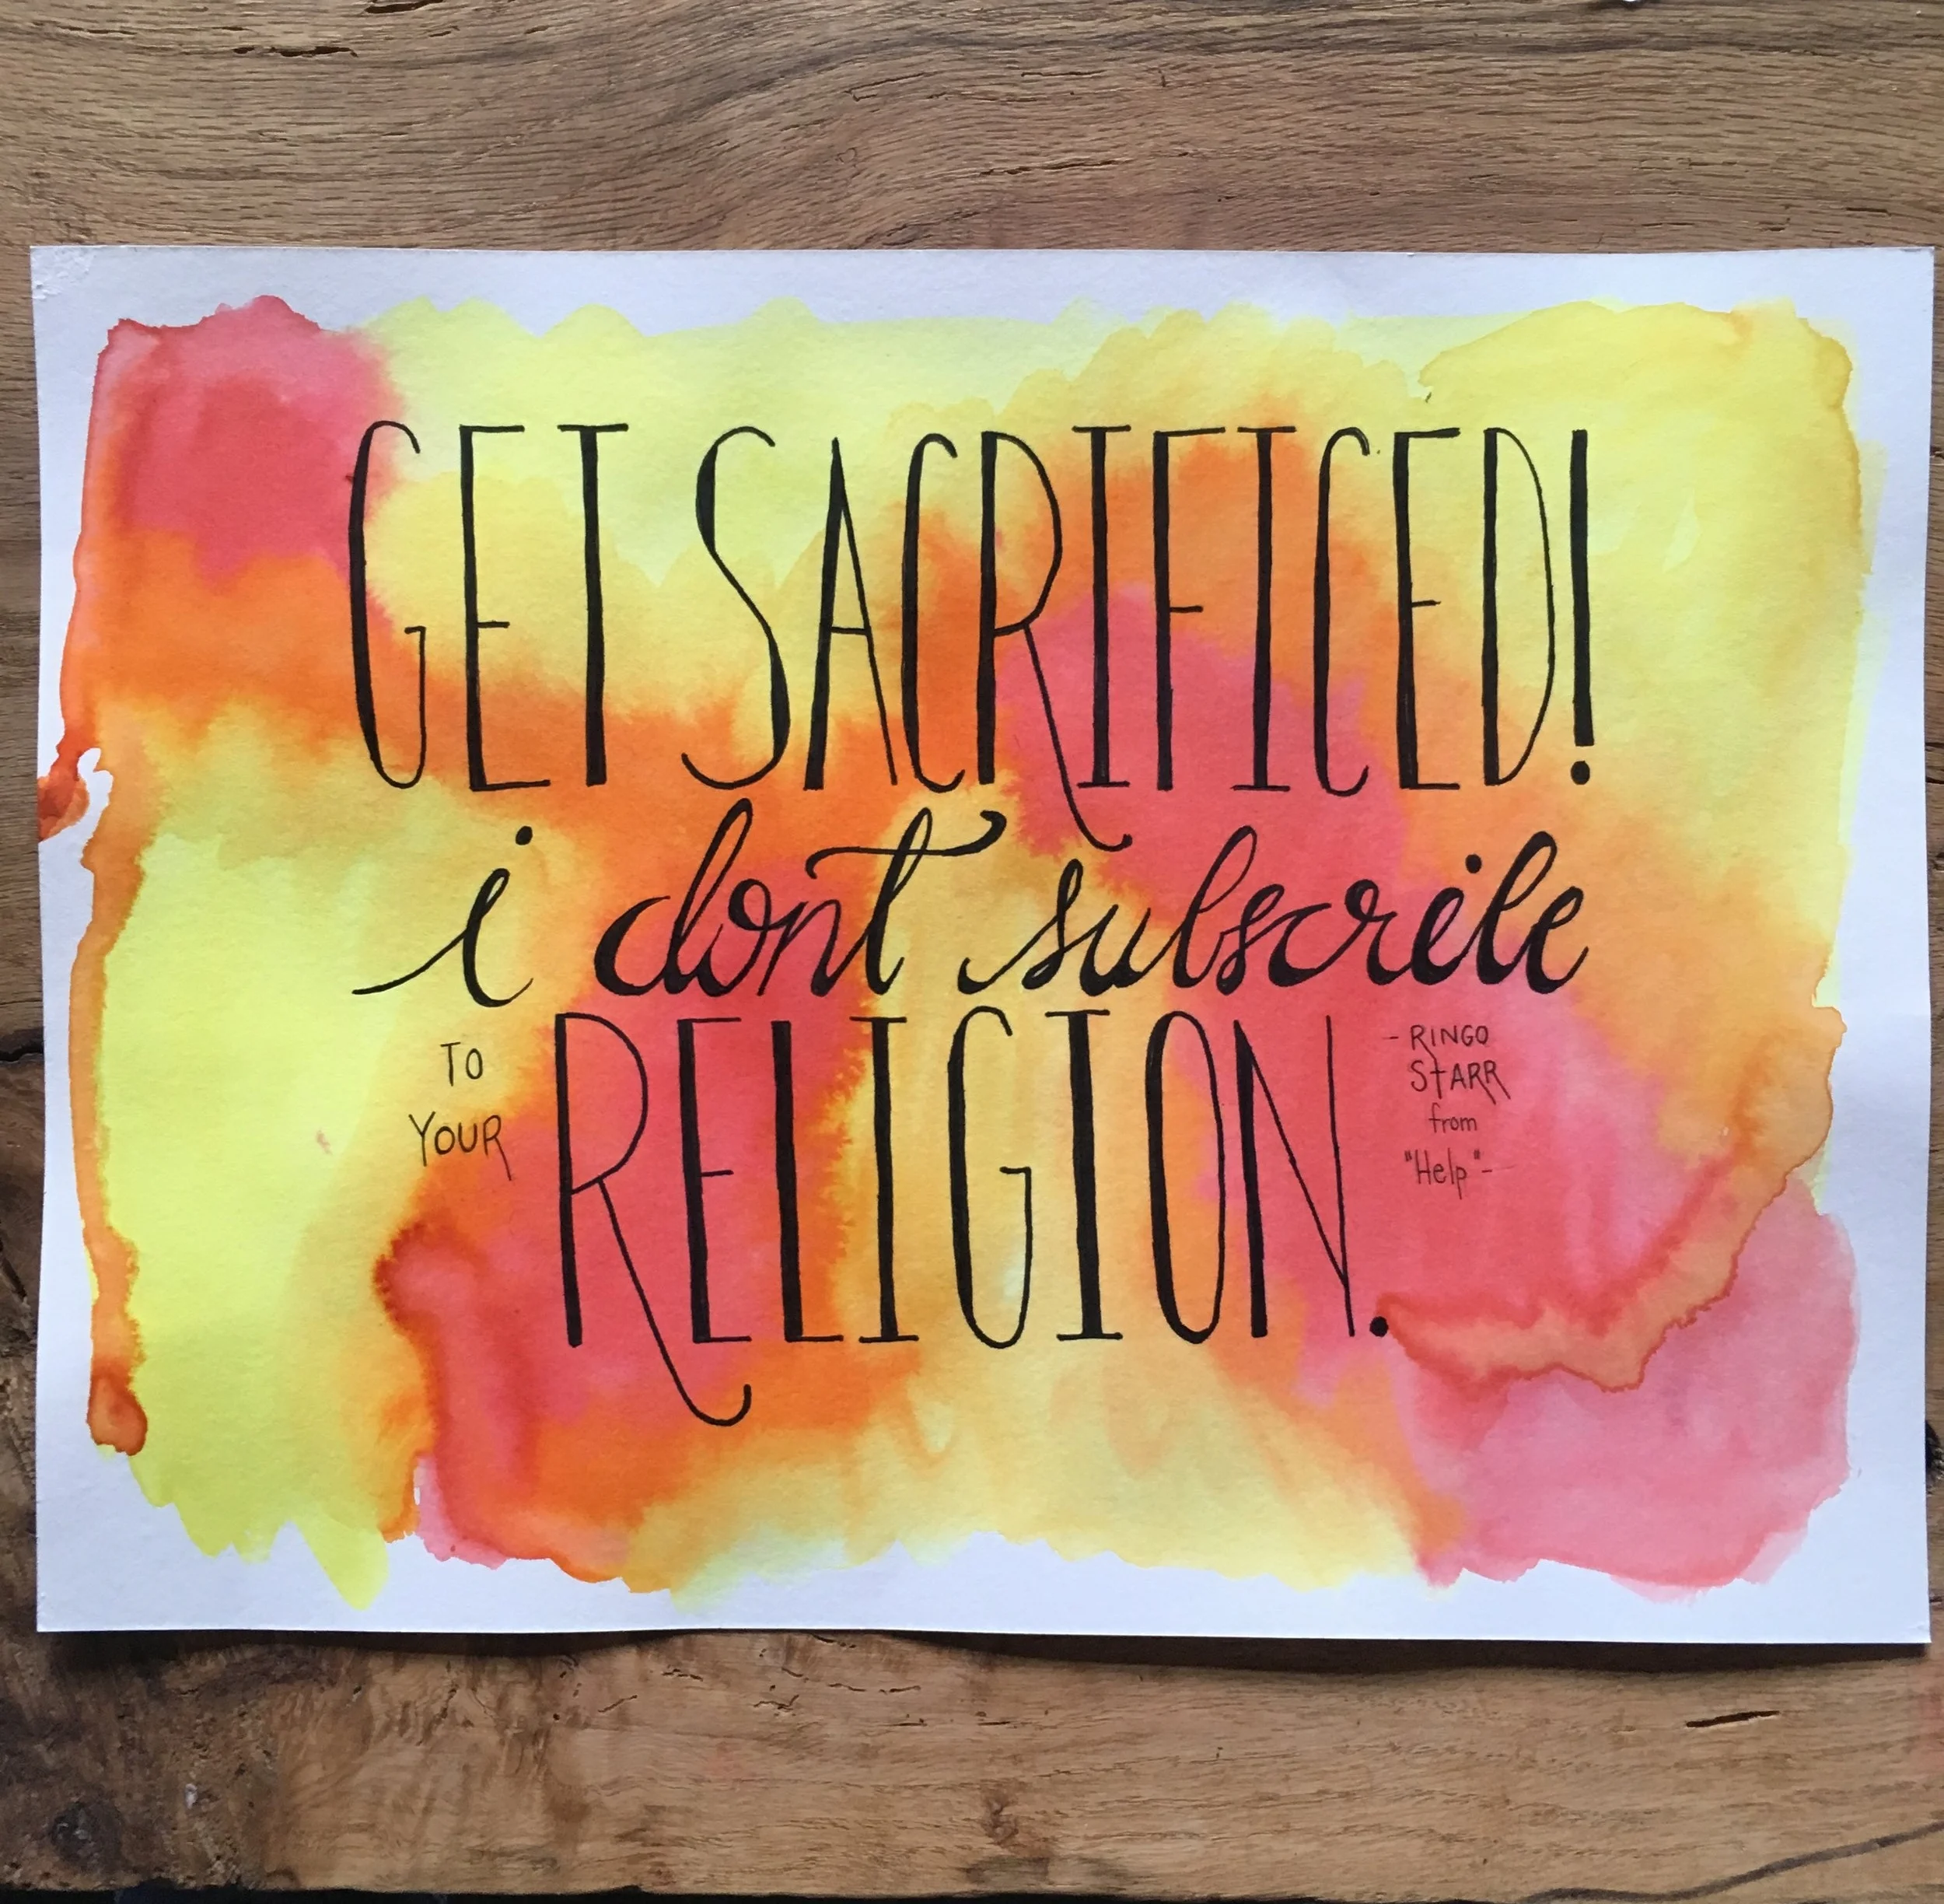 GET SACRIFICED!
i dont subscribe
TO
YOUR
RELIGION.
- RINGO
STARR
from
"Help"-